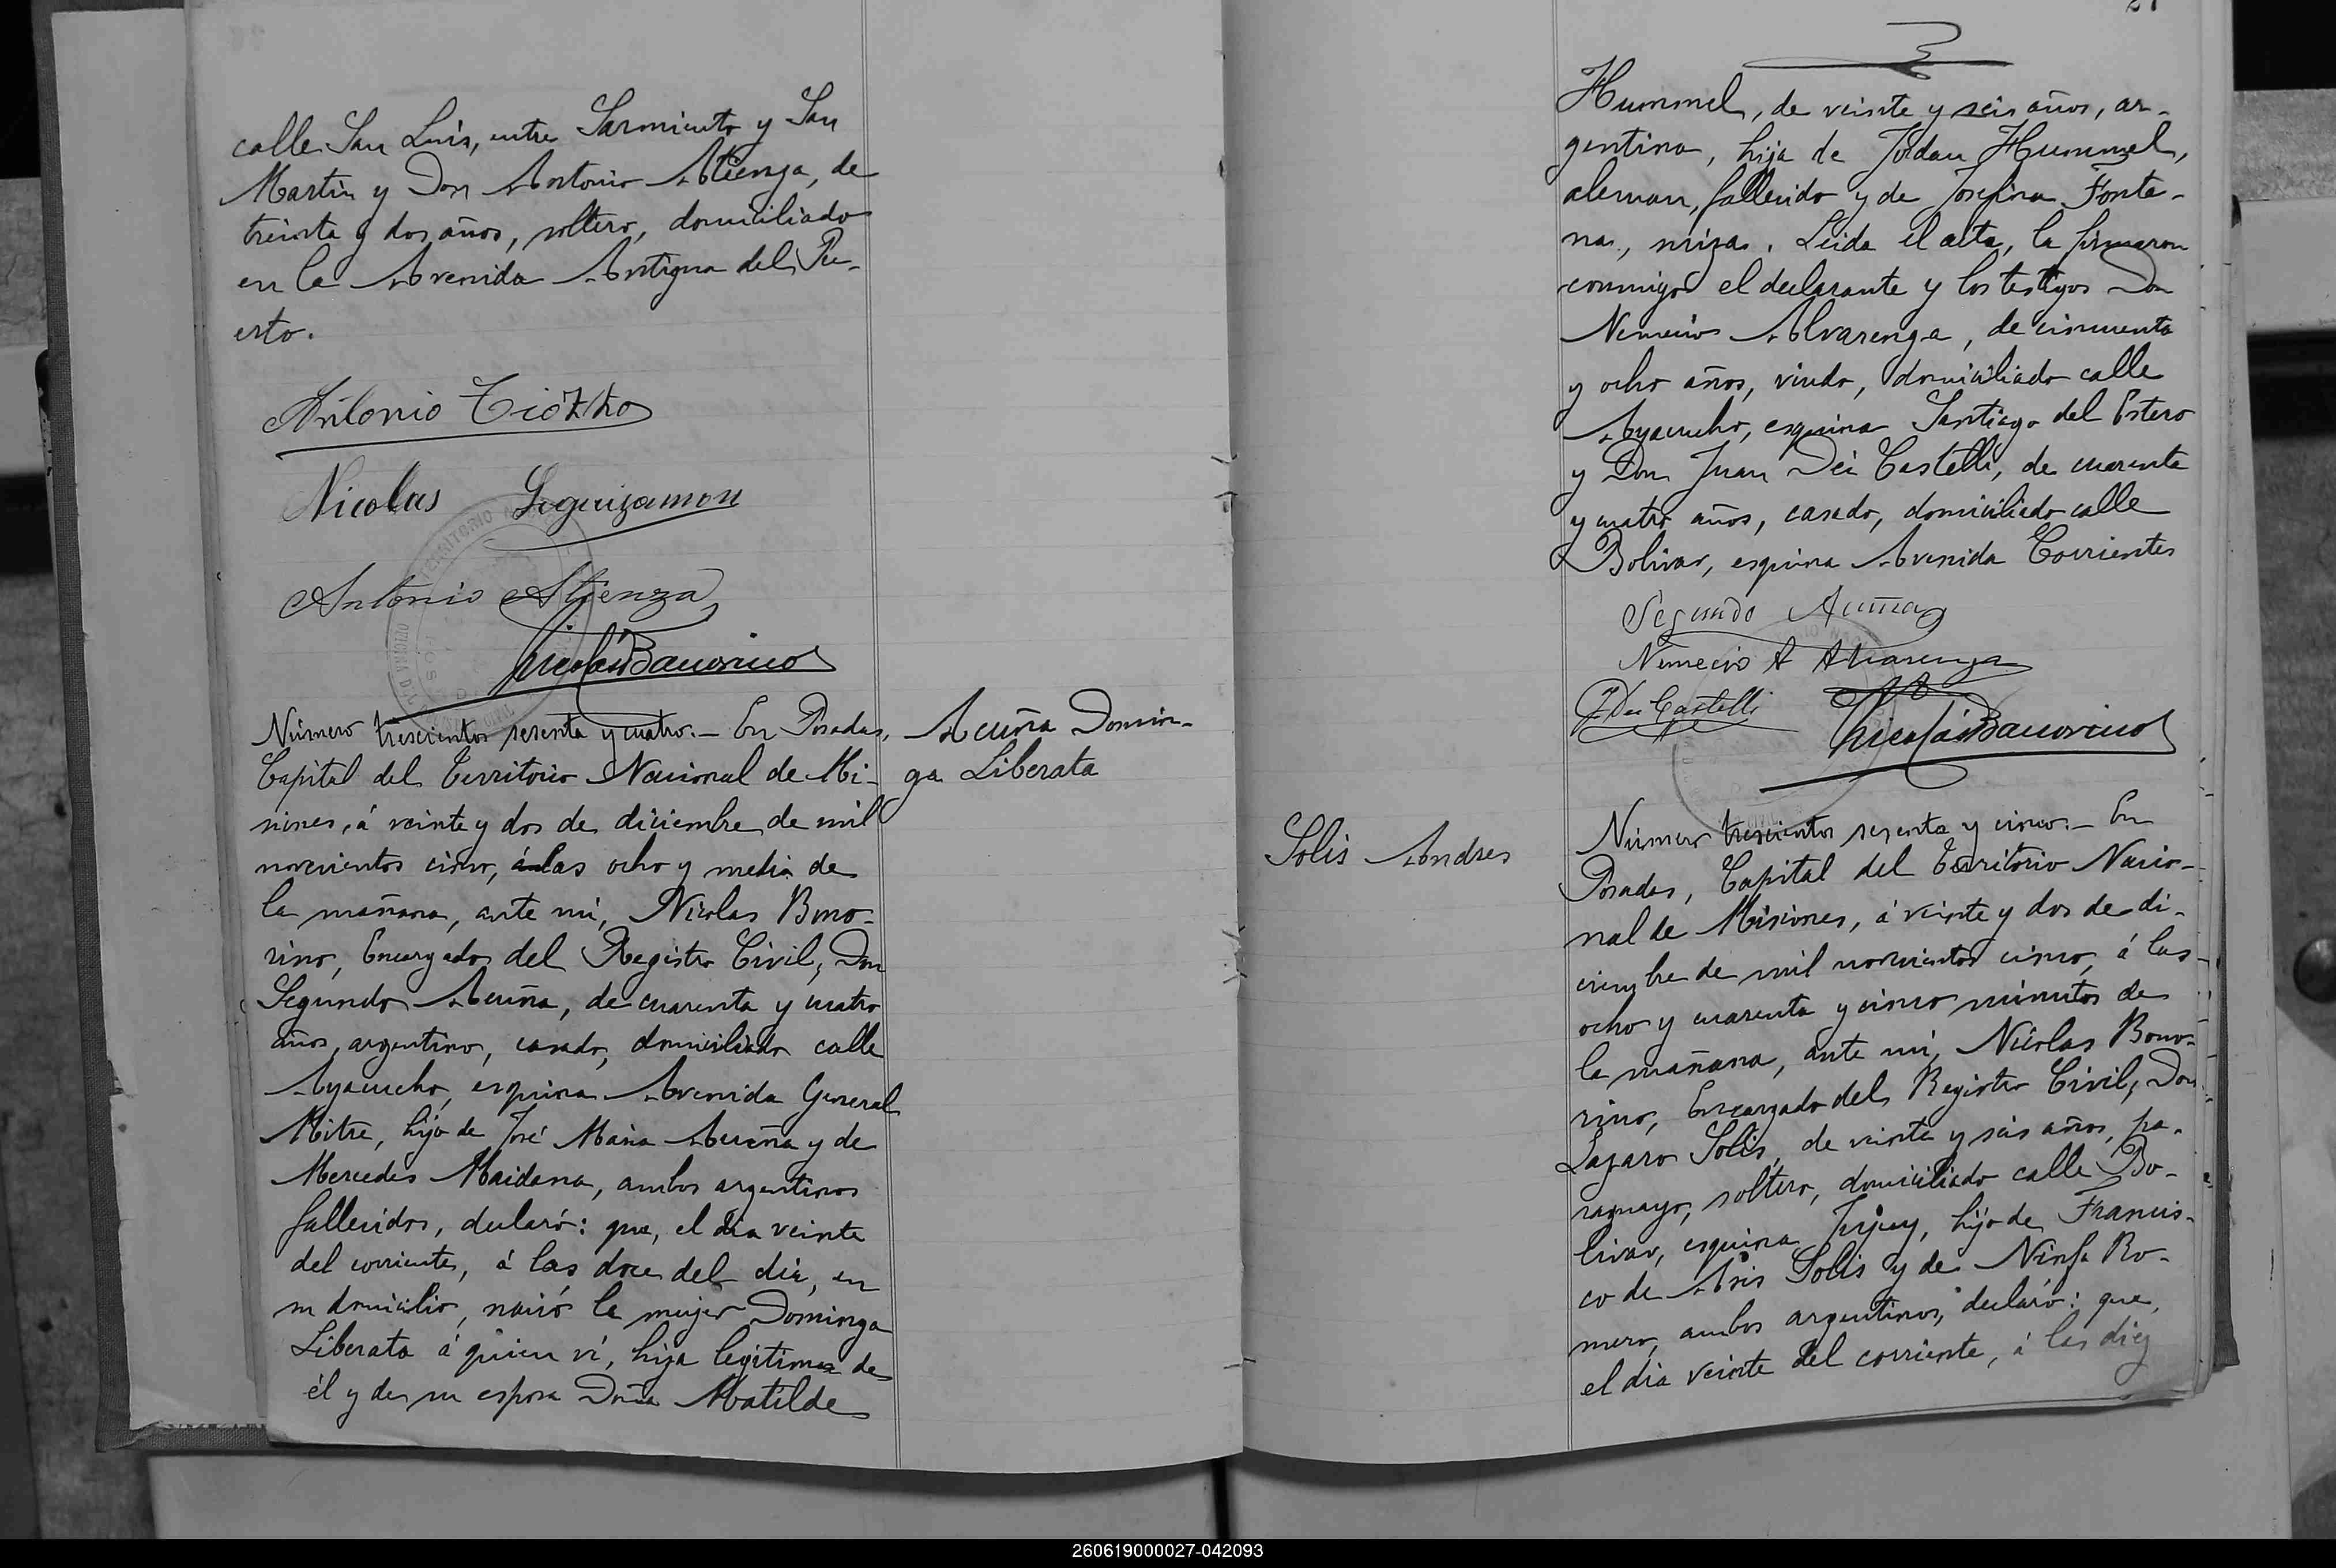 calle San Luis, entre Sarmiento y San
Martin y Don Antonio Atienza, de
treinta y dos años, soltero, domiciliado
en la Avenida Antigua del Pu-
erto.
Antonio Tiozzo
Nicolas Leguizamon
Antonio Atienza
Nicolás Bonorino
Número trescientos sesenta y cuatro.- En Posadas,
Capital del Territorio Nacional de Mi-
siones, á veinte y dos de diciembre de mil
novecientos cinco, á las ocho y media de
la mañana, ante mi, Nicolas Bono-
rino, Encargado del Registro Civil, Don
Segundo Acuña, de cuarenta y cuatro
años, argentino, casado, domiciliado calle
Ayacucho, esquina Avenida General
Mitre, hijo de José Maria Acuña y de
Mercedes Maidana, ambos argentinos
fallecidos, declaró: que, el dia veinte
del corriente, á las doce del dia, en
su domicilio, nació la mujer Dominga
Liberata á quien vi, hija legitima de
él y de su esposa Doña Matilde
Acuña Domin-
ga Liberata
Hummel, de veinte y seis años, ar-
gentina, hija de Jordan Hummel,
aleman, fallecido y de Josefina Fonta-
na, suiza. Leida el acta, la firmaron
conmigo el declarante y los testigos Don
Nemecio Alvarenga, de cincuenta
y ocho años, viudo, domiciliado calle
Ayacucho, esquina Santiago del Estero
y Don Juan Dei Castelli, de cuarenta
y cuatro años, casado, domiciliado calle
Bolivar, esquina Avenida Corrientes
Segundo Acuña
Nemecio A Alvarenga
J. Dei Castelli
Nicolás Bonorino
Solis Andres
Número trescientos sesenta y cinco.- En
Posadas, Capital del Territorio Nacio-
nal de Misiones, á veinte y dos de di-
ciembre de mil novecientos cinco, á las
ocho y cuarenta y cinco minutos de
la mañana, ante mi, Nicolas Bono-
rino, Encargado del Registro Civil, Don
Lazaro Solis, de veinte y seis años, pa-
raguayo, soltero, domiciliado calle Bo-
livar, esquina Jujuy, hijo de Francis-
co de Asis Solis y de Ninfa Ro-
mero, ambos argentinos, declaró: que,
el dia veinte del corriente, á las diez
260619000027-042093